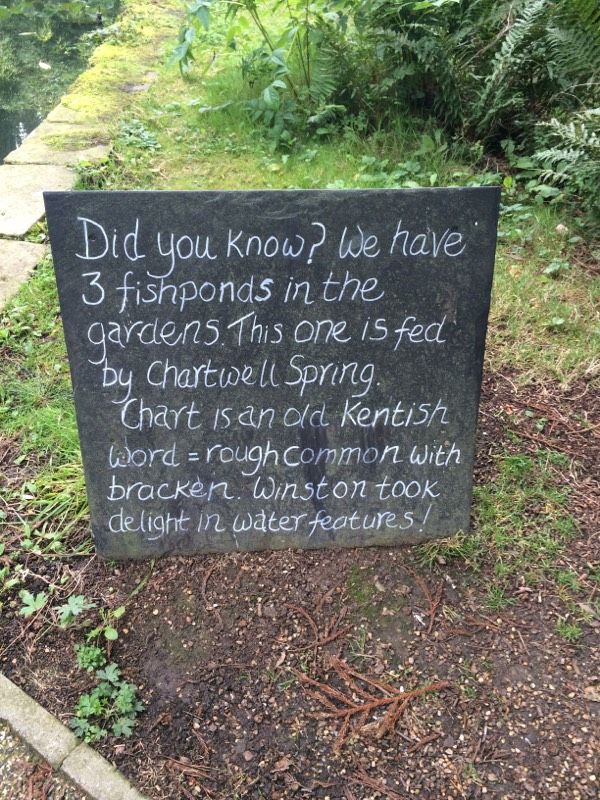 Did you know? We have
3 fishponds in the
gardens. This one is fed
by Chartwell Spring.
Chart is an old Kentish
word = rough common with
bracken. Winston took
delight in water features!